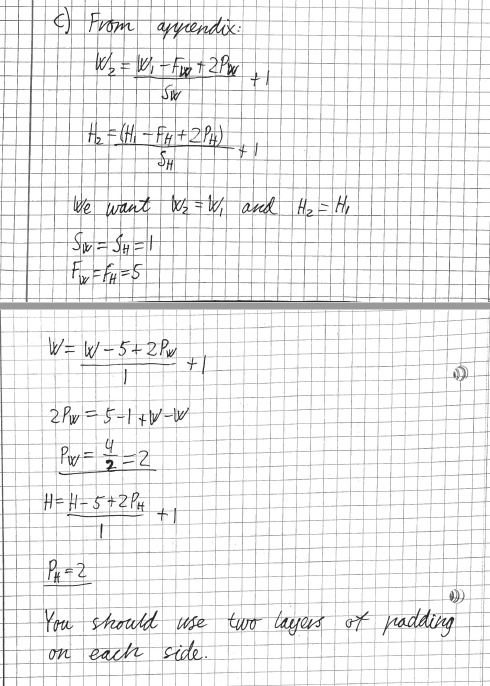 c) From appendix:
W₂ = (W₁ - F_W + 2P_W) / S_W + 1
H₂ = (H₁ - F_H + 2P_H) / S_H + 1
We want W₂ = W₁ and H₂ = H₁
S_W = S_H = 1
F_W = F_H = 5
W = (W - 5 + 2P_W) / 1 + 1
2P_W = 5 - 1 + W - W
P_W = 4/2 = 2
H = (H - 5 + 2P_H) / 1 + 1
P_H = 2
You should use two layers of padding
on each side.